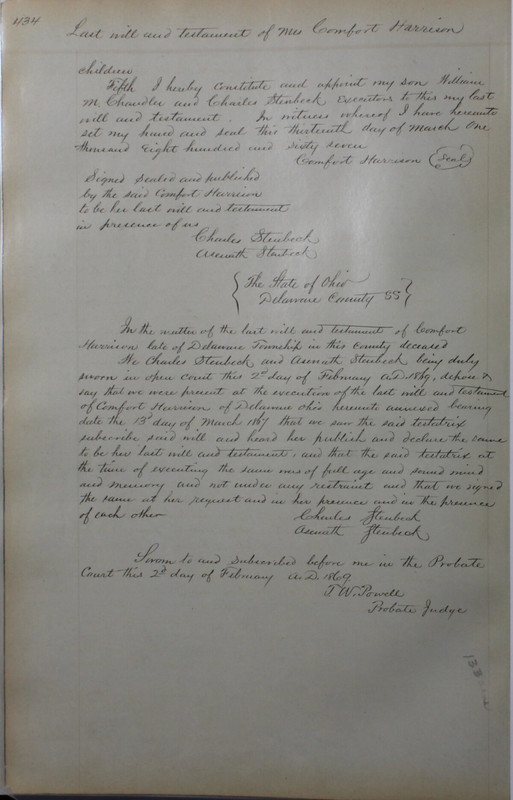 434
Last will and testament of Mrs Comfort Harrison
children
Fifth I hereby constitute and appoint my son William
M. Chandler and Charles Stenbeck Executors to this my last
will and testament. In witness whereof I have hereunto
set my hand and seal this thirteenth day of March One
thousand Eight hundred and sixty seven
Comfort Harrison (Seal)
Signed Sealed and published
by the said Comfort Harrison
to be her last will and testament
in presence of us
Charles Stenbeck
Asenath Stenbeck
{ The State of Ohio
Delaware County SS }
In the matter of the last will and testament of Comfort
Harrison late of Delaware Township in this County deceased
We Charles Stenbeck and Asenath Stenbeck being duly
sworn in open court this 2d day of February A.D. 1869, depose &
say that we were present at the execution of the last will and testament
of Comfort Harrison of Delaware Ohio hereunto annexed bearing
date the 13th day of March 1867 that we saw the said testatrix
subscribe said will and heard her publish and declare the same
to be her last will and testament, and that the said testatrix at
the time of executing the same was of full age and sound mind
and memory and not under any restraint and that we signed
the same at her request and in her presence and in the presence
of each other
Charles Stenbeck
Asenath Stenbeck
Sworn to and Subscribed before me in the Probate
Court this 2d day of February A.D. 1869
T. W. Powell
Probate Judge